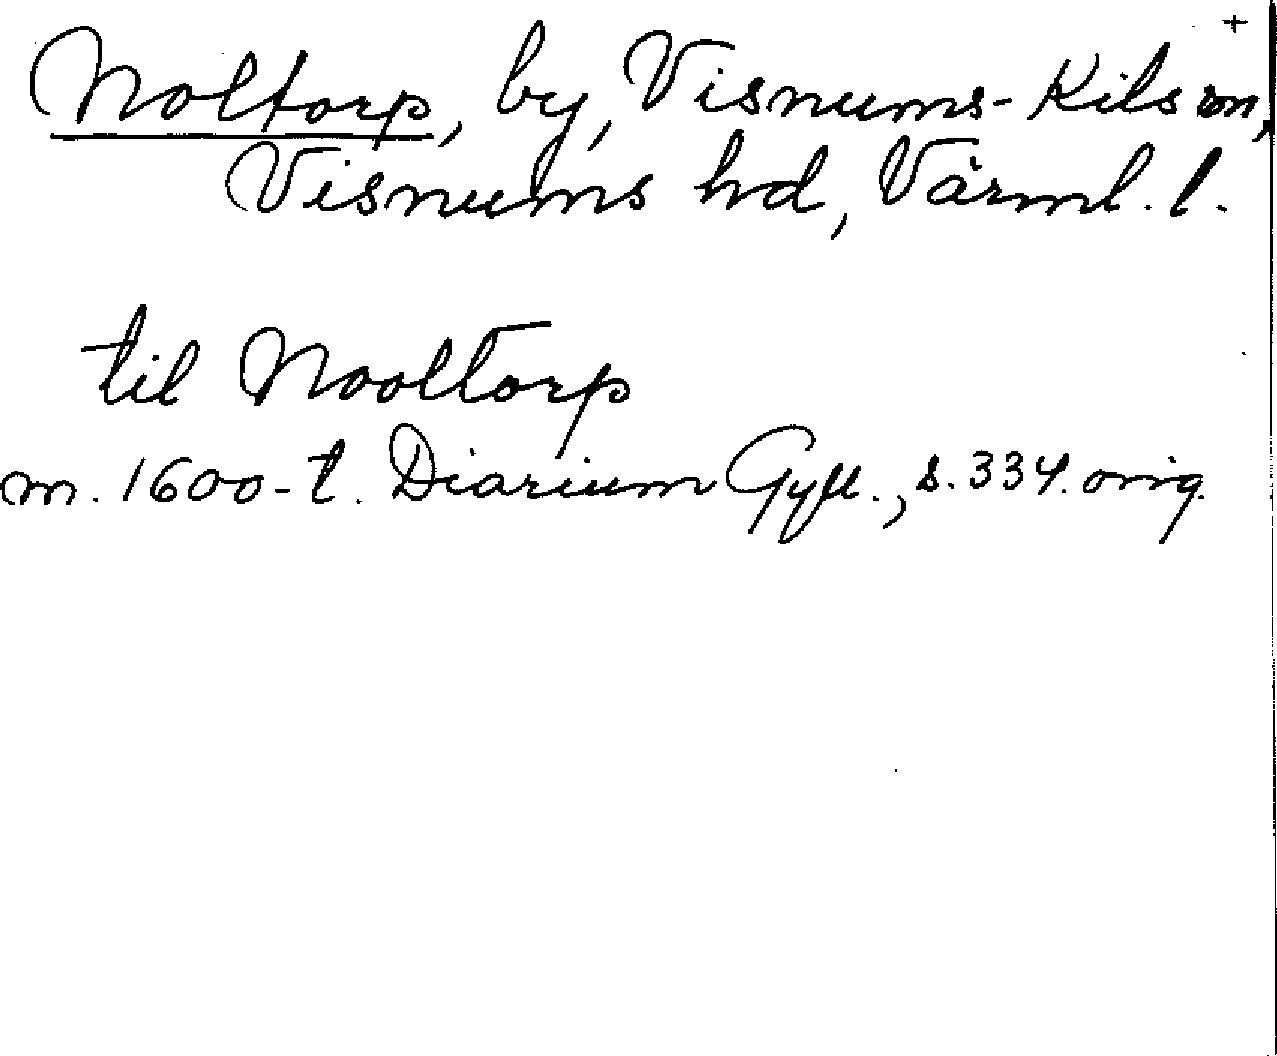 +
Noltorp, by, Visnums-Kils sn,
Visnums hd, Värml. l.
til Nooltorp
m. 1600-t. Diarium Gyll., s. 334. orig.